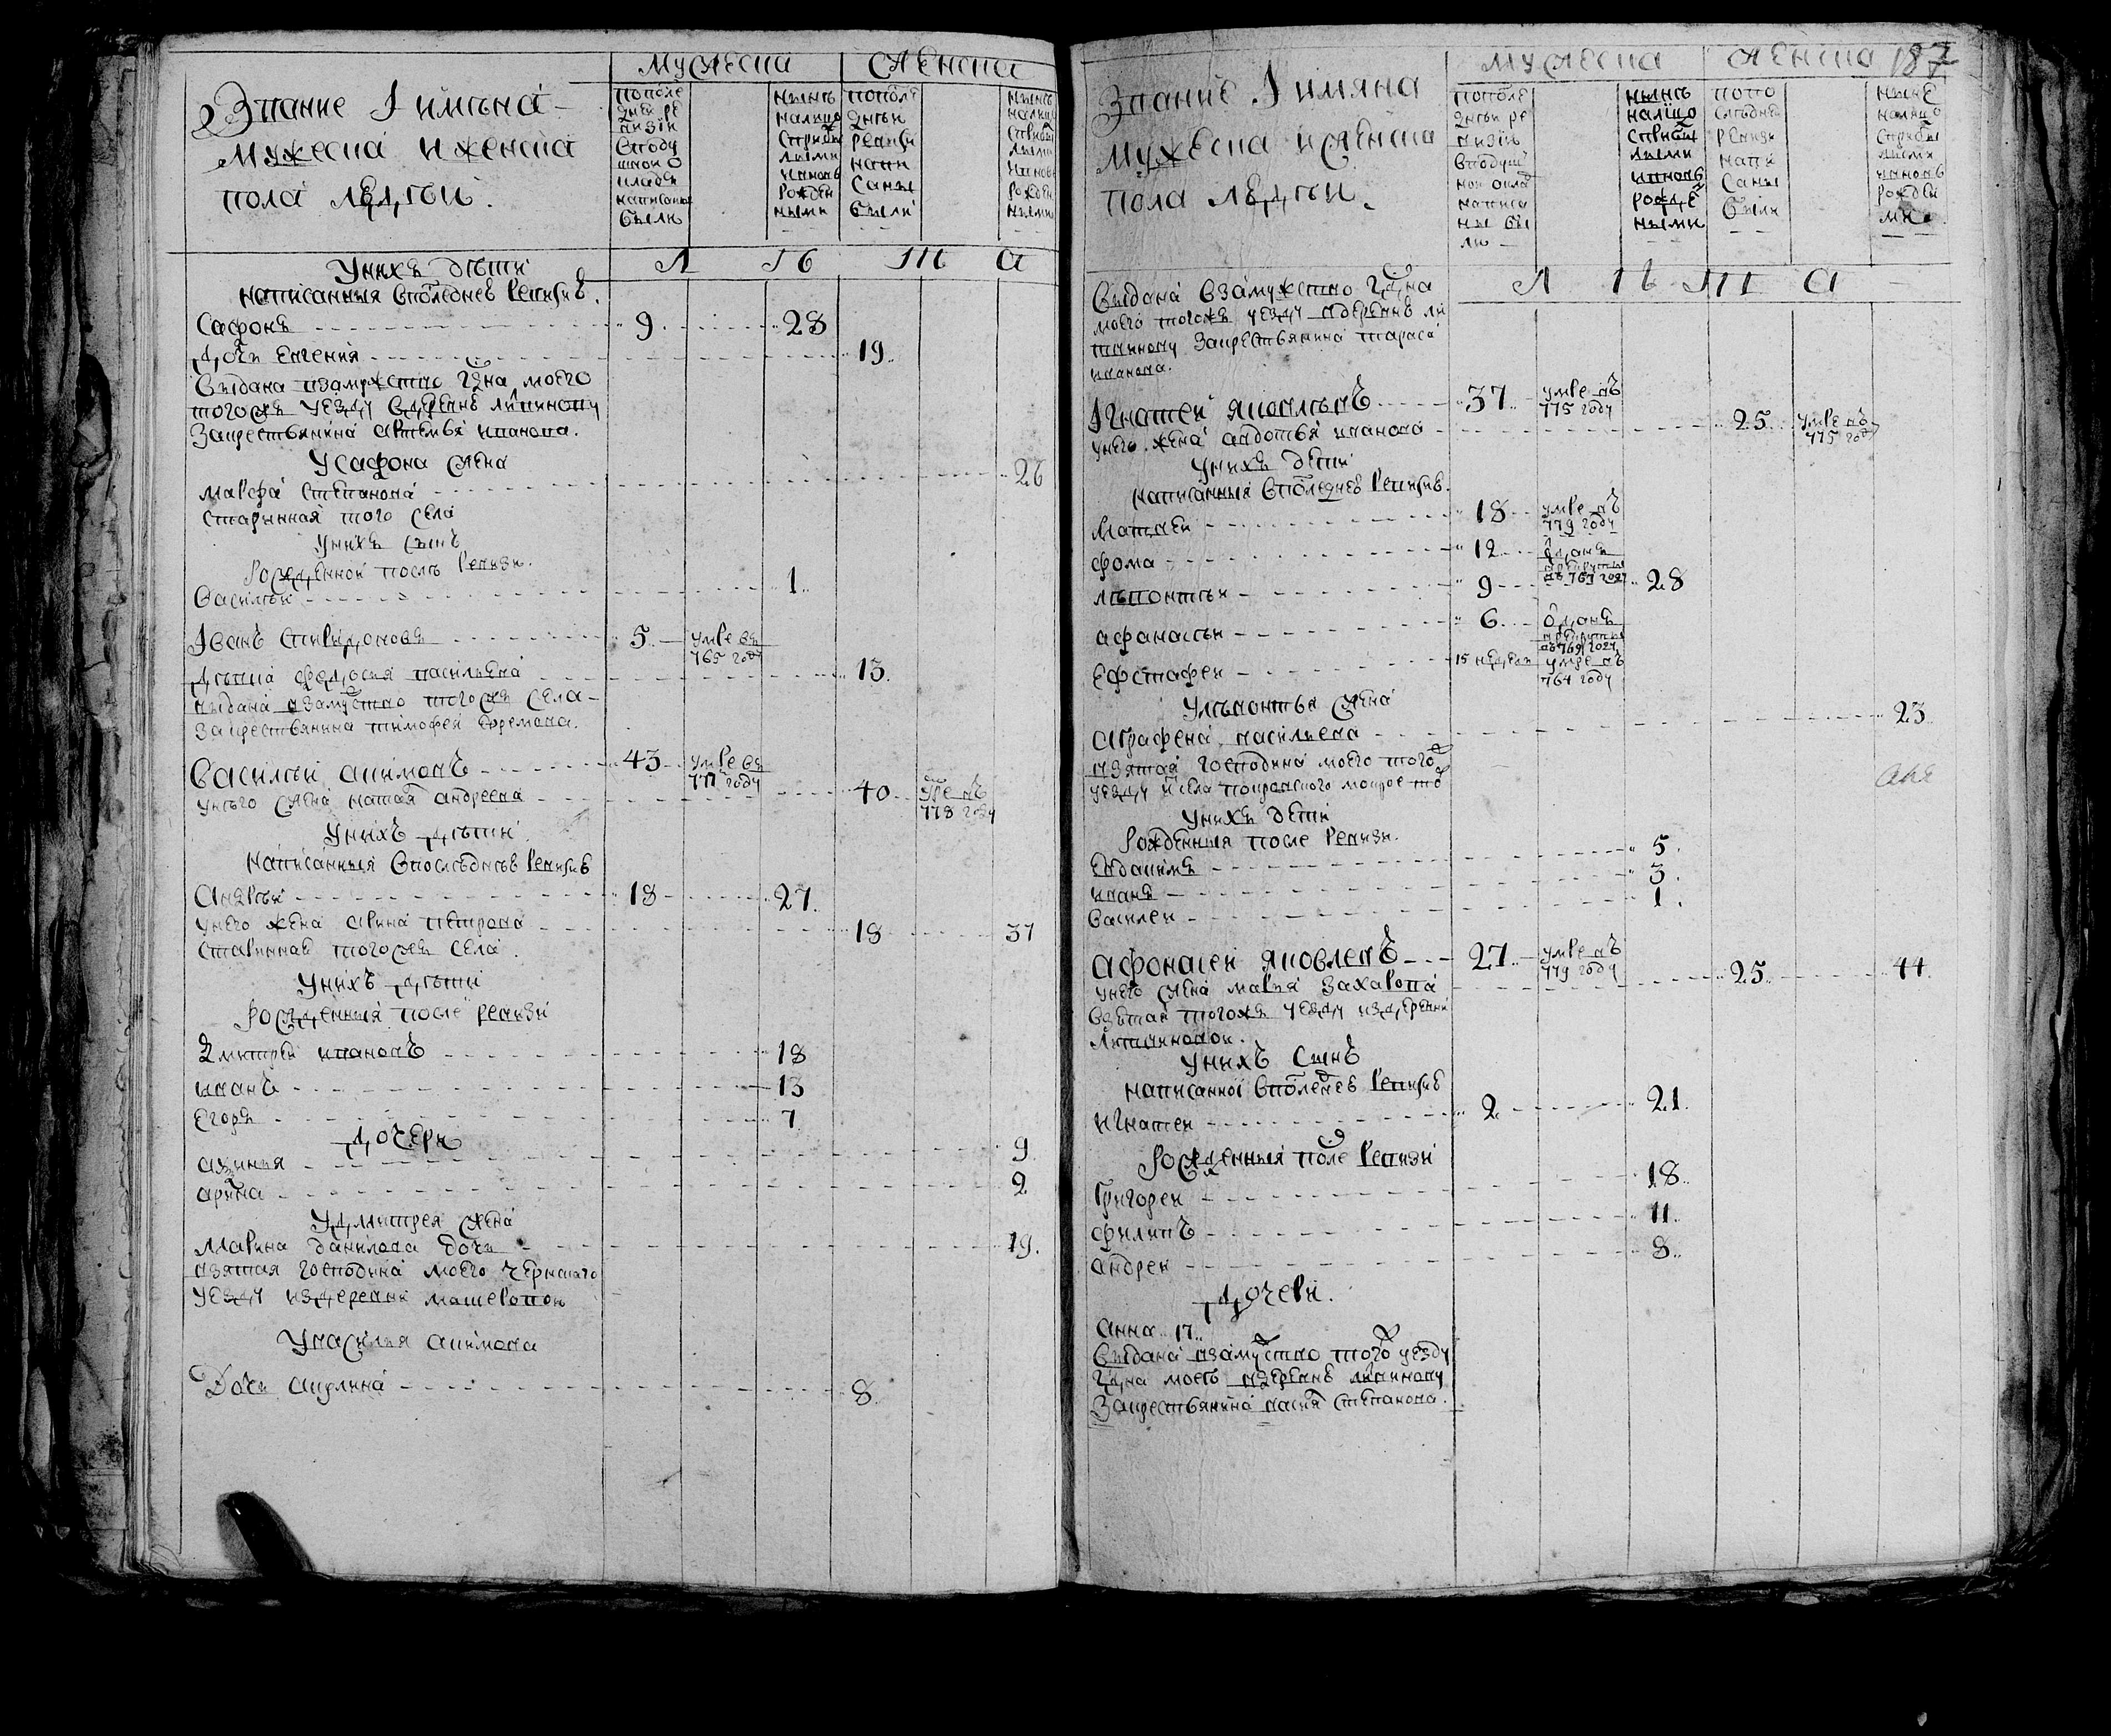 Звание Iимѣна
мужеска иженска
пола людѣи.
Мужеска
Женска
пополе
днеи ре
визiи
вподу
шном о
кладе
написаны
были
нынѣ
налицо
сприбы
лыми
ивновь
рожден
ными
пополе
днѣи
ревизи
напи
саны
были
нынѣ
налицо
сприбы
лыми
ивновь
рожден
ными
Л ТБ ПЬ А
Унихъ дѣти
написанныя вполеднеѣ ревизиѣ.
Сафонъ 9. 28
дочи Евгения 19.
Выдана взамужство гдна моего
тогожъ уезду вдеревнѣ
Закрестьянина Артемья иванова.
Усафона жена
марфа степанова 26
старинная того села
Унихъ сынъ
Рожденной послѣ ревизи.
Василѣи 1.
Iванъ спиридоновъ 5. умре въ
765 году
дѣвка федосия васильева 13.
выдана взамуство тогожъ села
закрестьянина тимофея ефремова.
Василѣи акимовъ 43 умре въ
777 году
унѣго жена наталя андреева 40 умре въ
778 году
Унихъ дѣти
Написанныя впослѣднеѣ ревизиѣ
Андрѣи 18 27.
унего жена арина петрова 18 37
старинная тогожъ села.
Унихъ дѣти
Рожденныя после ревизи
Дмитреи ивановъ 18
иванъ 13
Егоръ 7
дочери
аксинья 9
арина 2
Удмитрея жена
Марина данилова дочь 19.
взятая господина моего чернскаго
уезду издеревни
Увасилья акимова
Дочь акулина 8.
187
Звание Iимяна
мужеска иженска
пола людѣи.
Мужеска
Женска
пополе
днѣи ре
визiи
вподуш
ном окла
написа
ны бы
ли
нынѣ
налицо
сприбы
лыми
ивновь
рожде
ными
попо
слѣдне
ревизи
напи
саны
были
нынѣ
налицо
спрыбы
лыми
ивновь
рожден
ми
Л ТБ ПЬ А
Выдана взамужство гдна
моего тогожъ уезду вдеревнѣ
Закрестьянина тараса
иванова.
Iгнатеи яковлѣвъ 37 умре въ
775 году
унего жена авдотья иванова 25 умре въ
775 году
Унихъ дети
написанныя вполеднеѣ ревизиѣ.
Матвеи 18 умре въ
779 году
фома 12 отданъ
врекруты
въ 767 году
лѣвонтѣи 9 28
афанасѣи 6. отданъ
врекруты
въ 769 году
Ефстафеи 15 недели умре въ
764 году
Улѣвонтья жена
Аграфена васильева 23
взятая господина моего того
уезду исела покровского
Унихъ дети
Рожденныя после ревизи.
Евдакимъ 5.
иванъ 3.
Василеи 1.
Афонасеи яковлевъ 27 умре въ
779 году
унего жена марья захарова 25. 44.
взѣтая тогожъ уезду издеревни
Унихъ сынъ
написанноi вполеднеѣ ревизиѣ
Игнатеи 2. 21.
Рожденныя после ревизи
Григореи 18.
филипъ 11.
андреи 8.
дочери.
Анна 17
Выдана взамуство того уезду
гдна моего вдеревнѣ
Закрестьянина степанова.